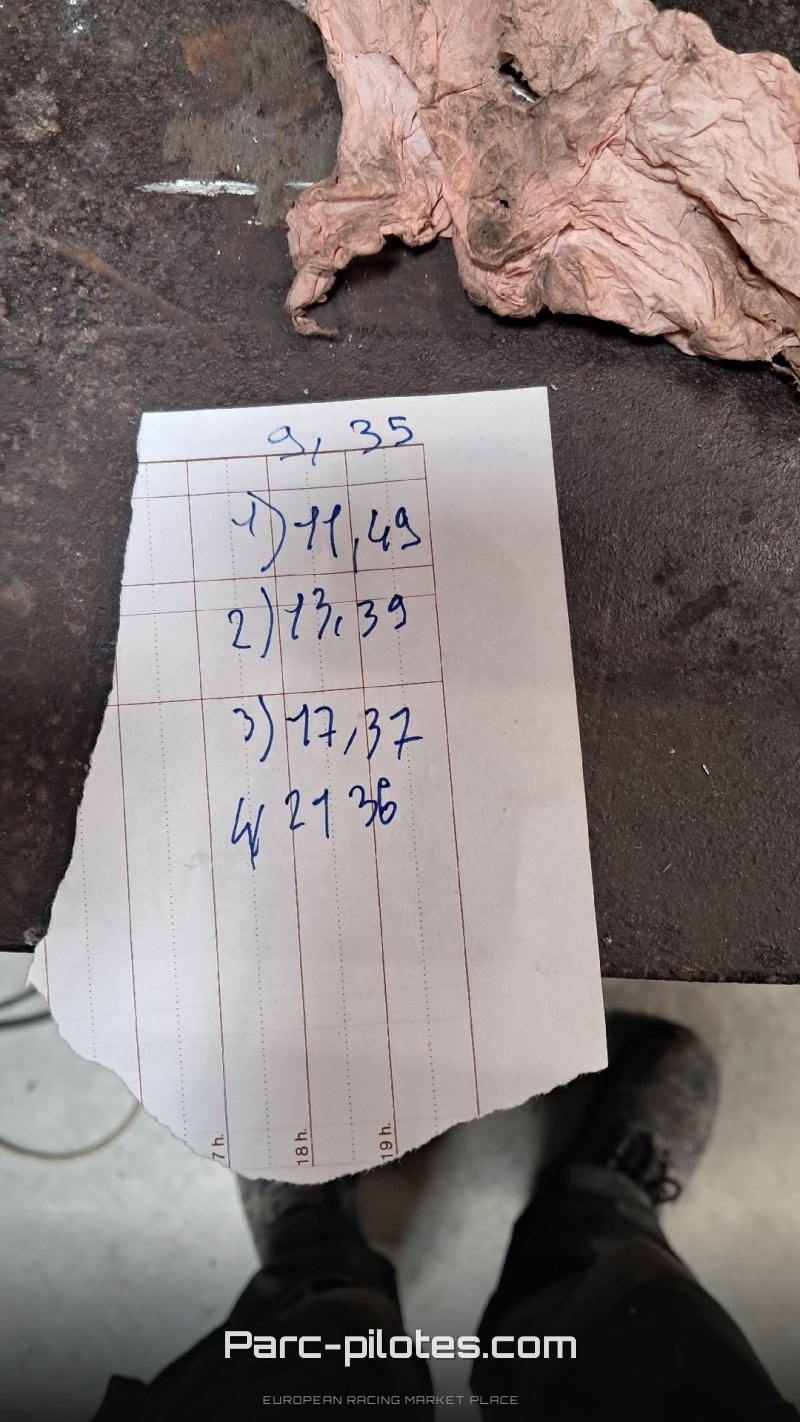 9,35
1) 11,49
2) 13,39
3) 17,37
4 21 36
7 h.
18 h.
19 h.
Parc-pilotes.com
EUROPEAN RACING MARKET PLACE